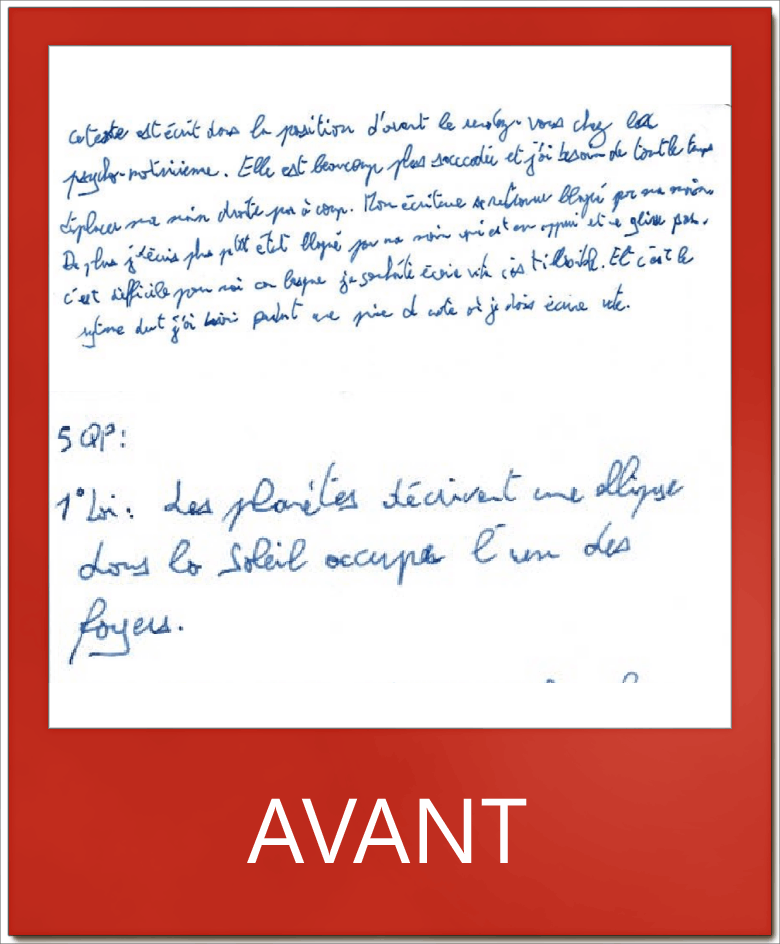 ce texte est écrit dans la position d'avant le rendez-vous chez la
psycho-motricienne. Elle est beaucoup plus saccadée et j'ai besoin de tout le temps
déplacer ma main droite par à coup. Mon écriture se retrouve bloqué par ma main.
De plus j'écris plus ptit et est bloqué par ma main qui est en appui et ne glisse pas.
c'est difficile pour moi car lorsque je souhaite écrire vite très lisible. Et c'est le
rythme dont j'ai besoin pendant une prise de note où je dois écrire vite.
5 QP:
1° Loi: Les planètes décrivent une ellipse
dons lo Soleil occupe l'un des
foyers.
AVANT